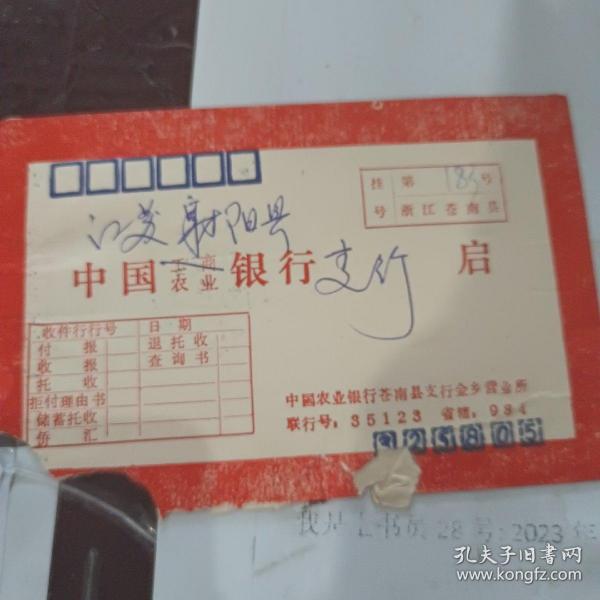 挂 第 185 号
号 浙江苍南县
江苏射阳县
中国 工商 农业 银行 支行 启
收件行行号 日期
付报 退托收
收报 查询书
托收
拒付理由书
储蓄托收
侨汇
中国农业银行苍南县支行金乡营业所
联行号：35123 省辖：934
325805
28号:2023年
孔夫子旧书网
www.kongfz.com